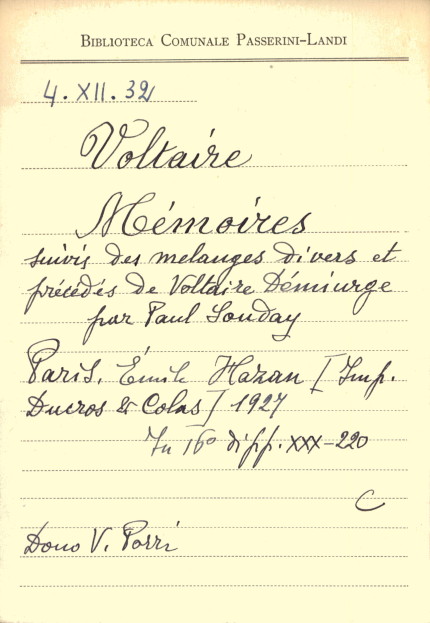 BIBLIOTECA COMUNALE PASSERINI-LANDI
4. XII. 32
Voltaire
Mémoires
suivis des melanges divers et
précédés de Voltaire Démiurge
par Paul Souday
Paris. Émile Hazan [Imp.
Ducros & Colas] 1927
In 16° di pp. XXX-220
C
Dono V. Porri